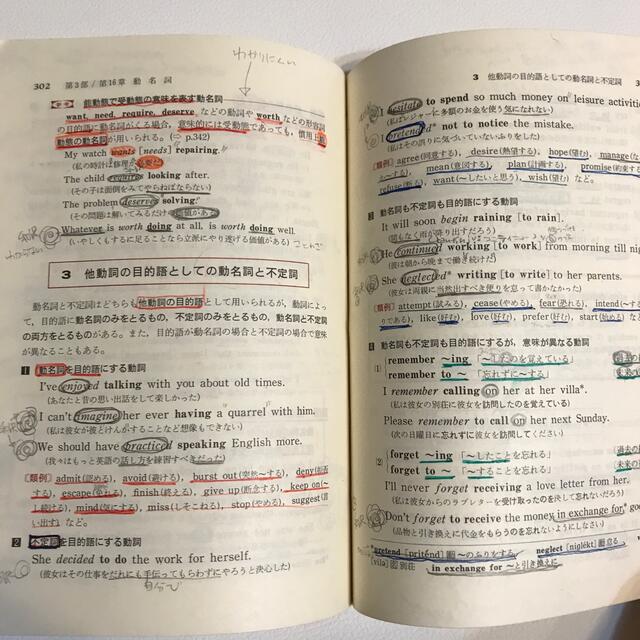 302 第3部/第16章 動 名 詞
わかりにくい
能動態で受動態の意味を表す動名詞
want, need, require, deserve などの動詞や worth などの形容詞
の目的語に動名詞がくる場合，意味的には受動態であっても，慣用上
能動態の動名詞が用いられる。(⇨ p.342)
My watch wants [needs] repairing.
(私の時計は修理が必要だ)
The child requires looking after.
(その子は面倒をみてやらねばならない)
The problem deserves solving.
(その問題は解いてみるだけの価値がある)
Whatever is worth doing at all, is worth doing well.
(いやしくもするに足ることなら立派にやり遂げる価値がある)
3 他動詞の目的語としての動名詞と不定詞
動名詞と不定詞はどちらも他動詞の目的語として用いられるが，動詞によっ
て，目的語に動名詞のみをとるもの，不定詞のみをとるもの，動名詞と不定詞
の両方をとるものがある。また，目的語が動名詞の場合と不定詞の場合で意味
が異なることもある。
1 動名詞を目的語にする動詞
I've enjoyed talking with you about old times.
(あなたと昔の思い出話をして楽しかった)
I can't imagine her ever having a quarrel with him.
(私は彼女が彼とけんかすることなど想像もできない)
We should have practiced speaking English more.
(我々はもっと英語の話し方を練習すべきだった)
[類例] admit(認める), avoid(避ける), burst out(突然〜する), deny(否定
する), escape(免れる), finish(終える), give up(断念する), keep on(〜
し続ける), mind(気にする), miss(しそこねる), stop(やめる), suggest(言
い出す) など。
2 不定詞を目的語にする動詞
She decided to do the work for herself.
(彼女はその仕事をだれにも手伝ってもらわずにやろうと決心した)
自分で
3 他動詞の目的語としての動名詞と不定詞
I hesitate to spend so much money on leisure activi
(私はレジャーに多額のお金を使う気になれない)
I pretended* not to notice the mistake.
(私はその誤りに気づいていないふりをした)
[類例] agree(同意する), desire(熱望する), hope(望む), manage(な
mean(意図する), plan(計画する), promise(約束す
refuse(断る), want(〜したいと思う), wish(望む) など。
3 動名詞も不定詞も目的語にする動詞
It will soon begin raining [to rain].
(間もなく雨が降り出すだろう)
He continued working [to work] from morning till nig
(彼は朝から晩まで働き続けた)
She neglected* writing [to write] to her parents.
(彼女は両親に当然出すべき便りを怠って書かなかった)
[類例] attempt(試みる), cease(やめる), fear(恐れる), intend(〜す
りである), like(好む), love(好む), prefer(好む), start(始める) な
4 動名詞も不定詞も目的語にするが，意味が異なる動詞
(1) remember 〜ing 「〜したのを覚えている」
remember to 〜 「忘れずに〜する」
I remember calling on her at her villa*.
(私は彼女の別荘に彼女を訪問したのを覚えている)
Please remember to call on her next Sunday.
(次の日曜日に忘れずに彼女を訪問してください)
(2) forget 〜ing 「〜したことを忘れる」
forget to 〜 「〜することを忘れる」
I'll never forget receiving a love letter from her.
(私は彼女からのラブレターを受け取ったのを決して忘れないだろう)
Don't forget to receive the money in exchange for go
(品物と引き換えに代金をもらうのを忘れないようにしなさい)
pretend [priténd] 動 〜のふりをする
neglect [niglékt] 動 怠る
[vílə] 名 別荘
in exchange for 〜と引き換えに